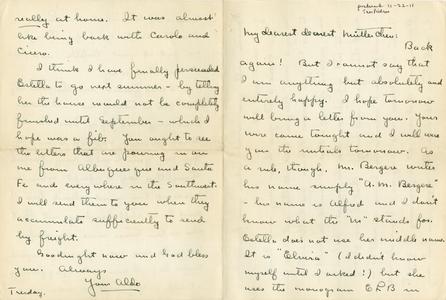 postmark 11-22-11
My dearest dearest Mütterchen:
Back
again! But I cannot say that
I am anything but absolutely and
entirely happy. I hope tomorrow
will bring a letter from you. Yours
were came tonight and I will wire
you the initials tomorrow. As
a rule, though, Mr. Bergere writes
his name simply "A. M. Bergere"
- his name is Alfred and I don't
know what the "M" stands for.
Estella does not use her middle name.
It is "Elvira" (I didn't know
myself until I asked!) but she
uses the monogram ELB in
really at home. It was almost
like being back with Carolo and
Cicero.
I think I have finally persuaded
Estella to go next summer - by telling
her the house would not be completely
finished until September - which I
hope was a fib. You ought to see
the letters that are pouring in on
me from Albuquerque and Santa
Fe and everywhere in the Southwest.
I will send them to you when they
accumulate sufficiently to send
by freight.
Goodnight now and God bless
you. Always
Your Aldo
Tuesday.